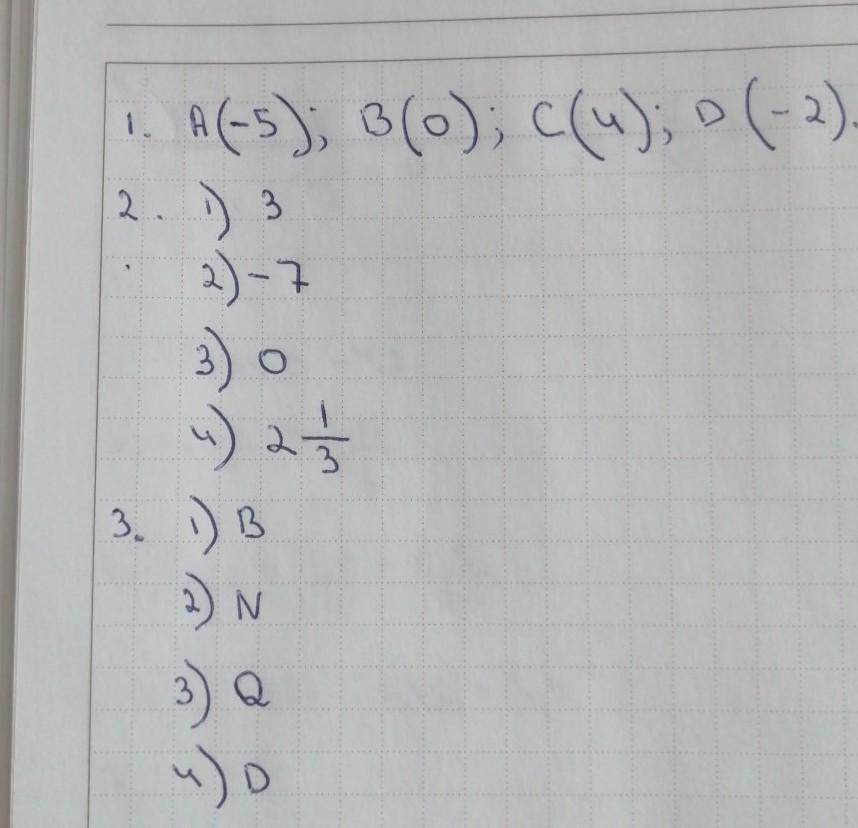 1. A(-5); B(0); C(4); D(-2).
2. 1) 3
2) -7
3) 0
4) 2 1/3
3. 1) B
2) N
3) Q
4) D